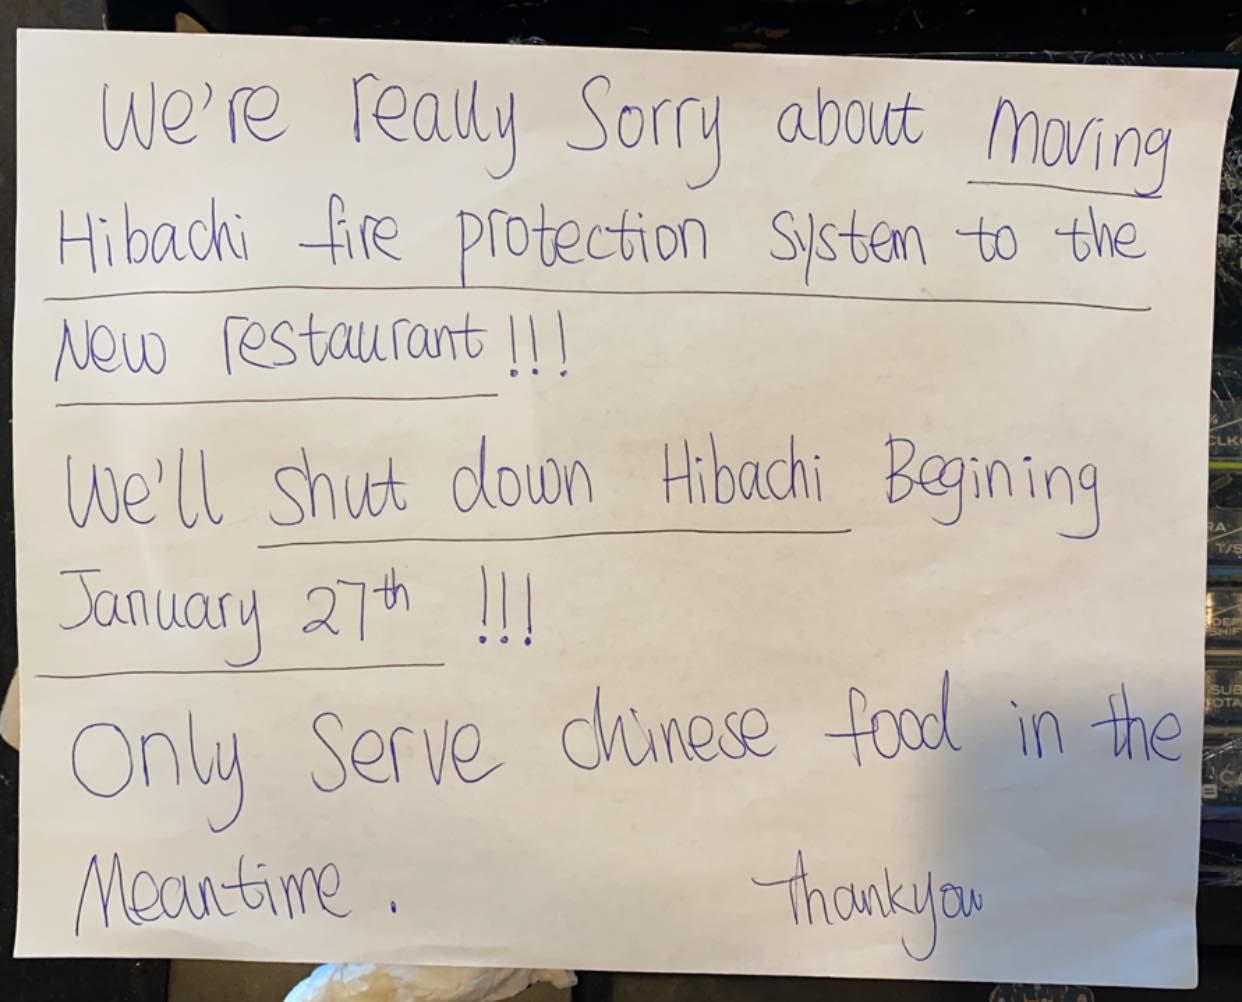 We're really Sorry about moving
Hibachi fire protection System to the
New restaurant!!!
We'll shut down Hibachi Begining
January 27th !!!
Only Serve chinese food in the
Meantime. Thankyou
CLK
RA
T/S
SUB